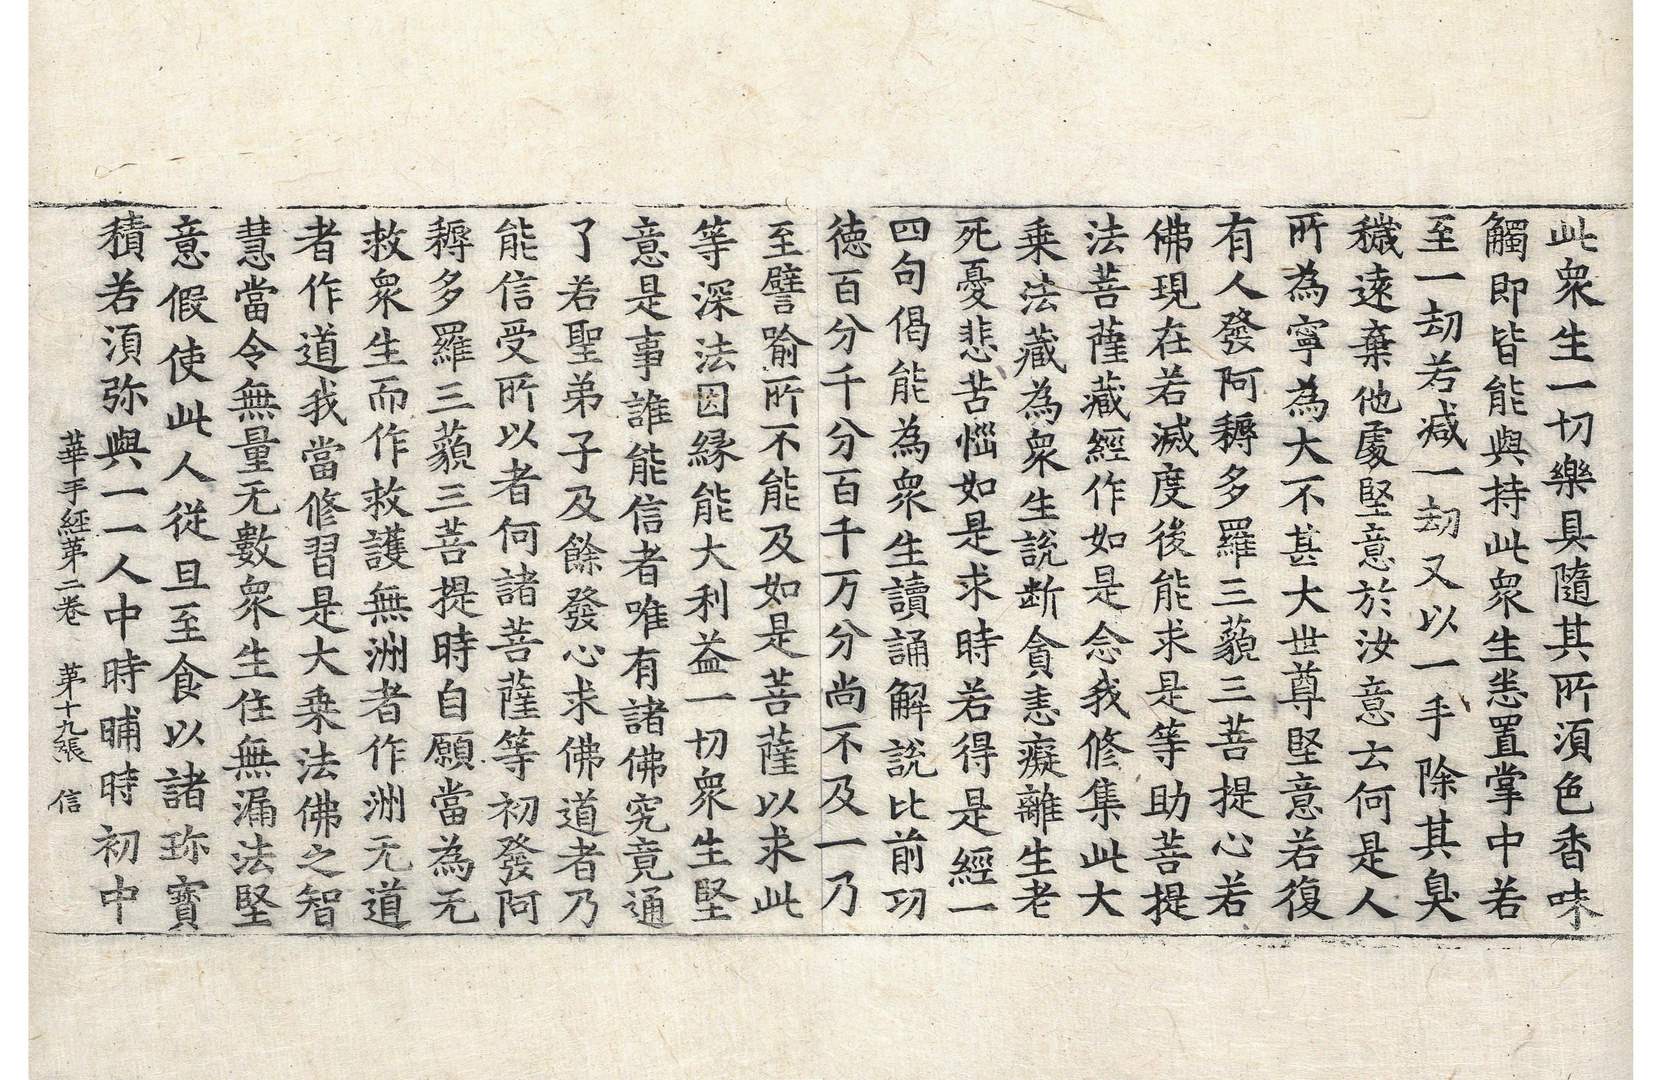 此衆生一切樂具隨其所湏色香味
觸即皆能與持此衆生悉置掌中若
至一劫若減一劫又以一手除其臭
穢遠棄他處堅意於汝意云何是人
所為寧為大不甚大世尊堅意若復
有人發阿耨多羅三藐三菩提心若
佛現在若滅度後能求是等助菩提
法菩薩藏經作如是念我修集此大
乗法藏為衆生說断貪恚癡離生老
死憂悲苦惱如是求時若得是經一
四句偈能為衆生讀誦解説比前功
徳百分千分百千万分尚不及一乃
至譬喻所不能及如是菩薩以求此
等深法因縁能大利益一切衆生堅
意是事誰能信者唯有諸佛究竟通
了若聖弟子及餘發心求佛道者乃
能信受所以者何諸菩薩等初發阿
耨多羅三藐三菩提時自願當為无
救衆生而作救護無洲者作洲无道
者作道我當修習是大乗法佛之智
慧當令無量无數衆生住無漏法堅
意假使此人從旦至食以諸珎寳
積若湏弥與一一人中時晡時初中
華手經苐二卷　苐十九張　信